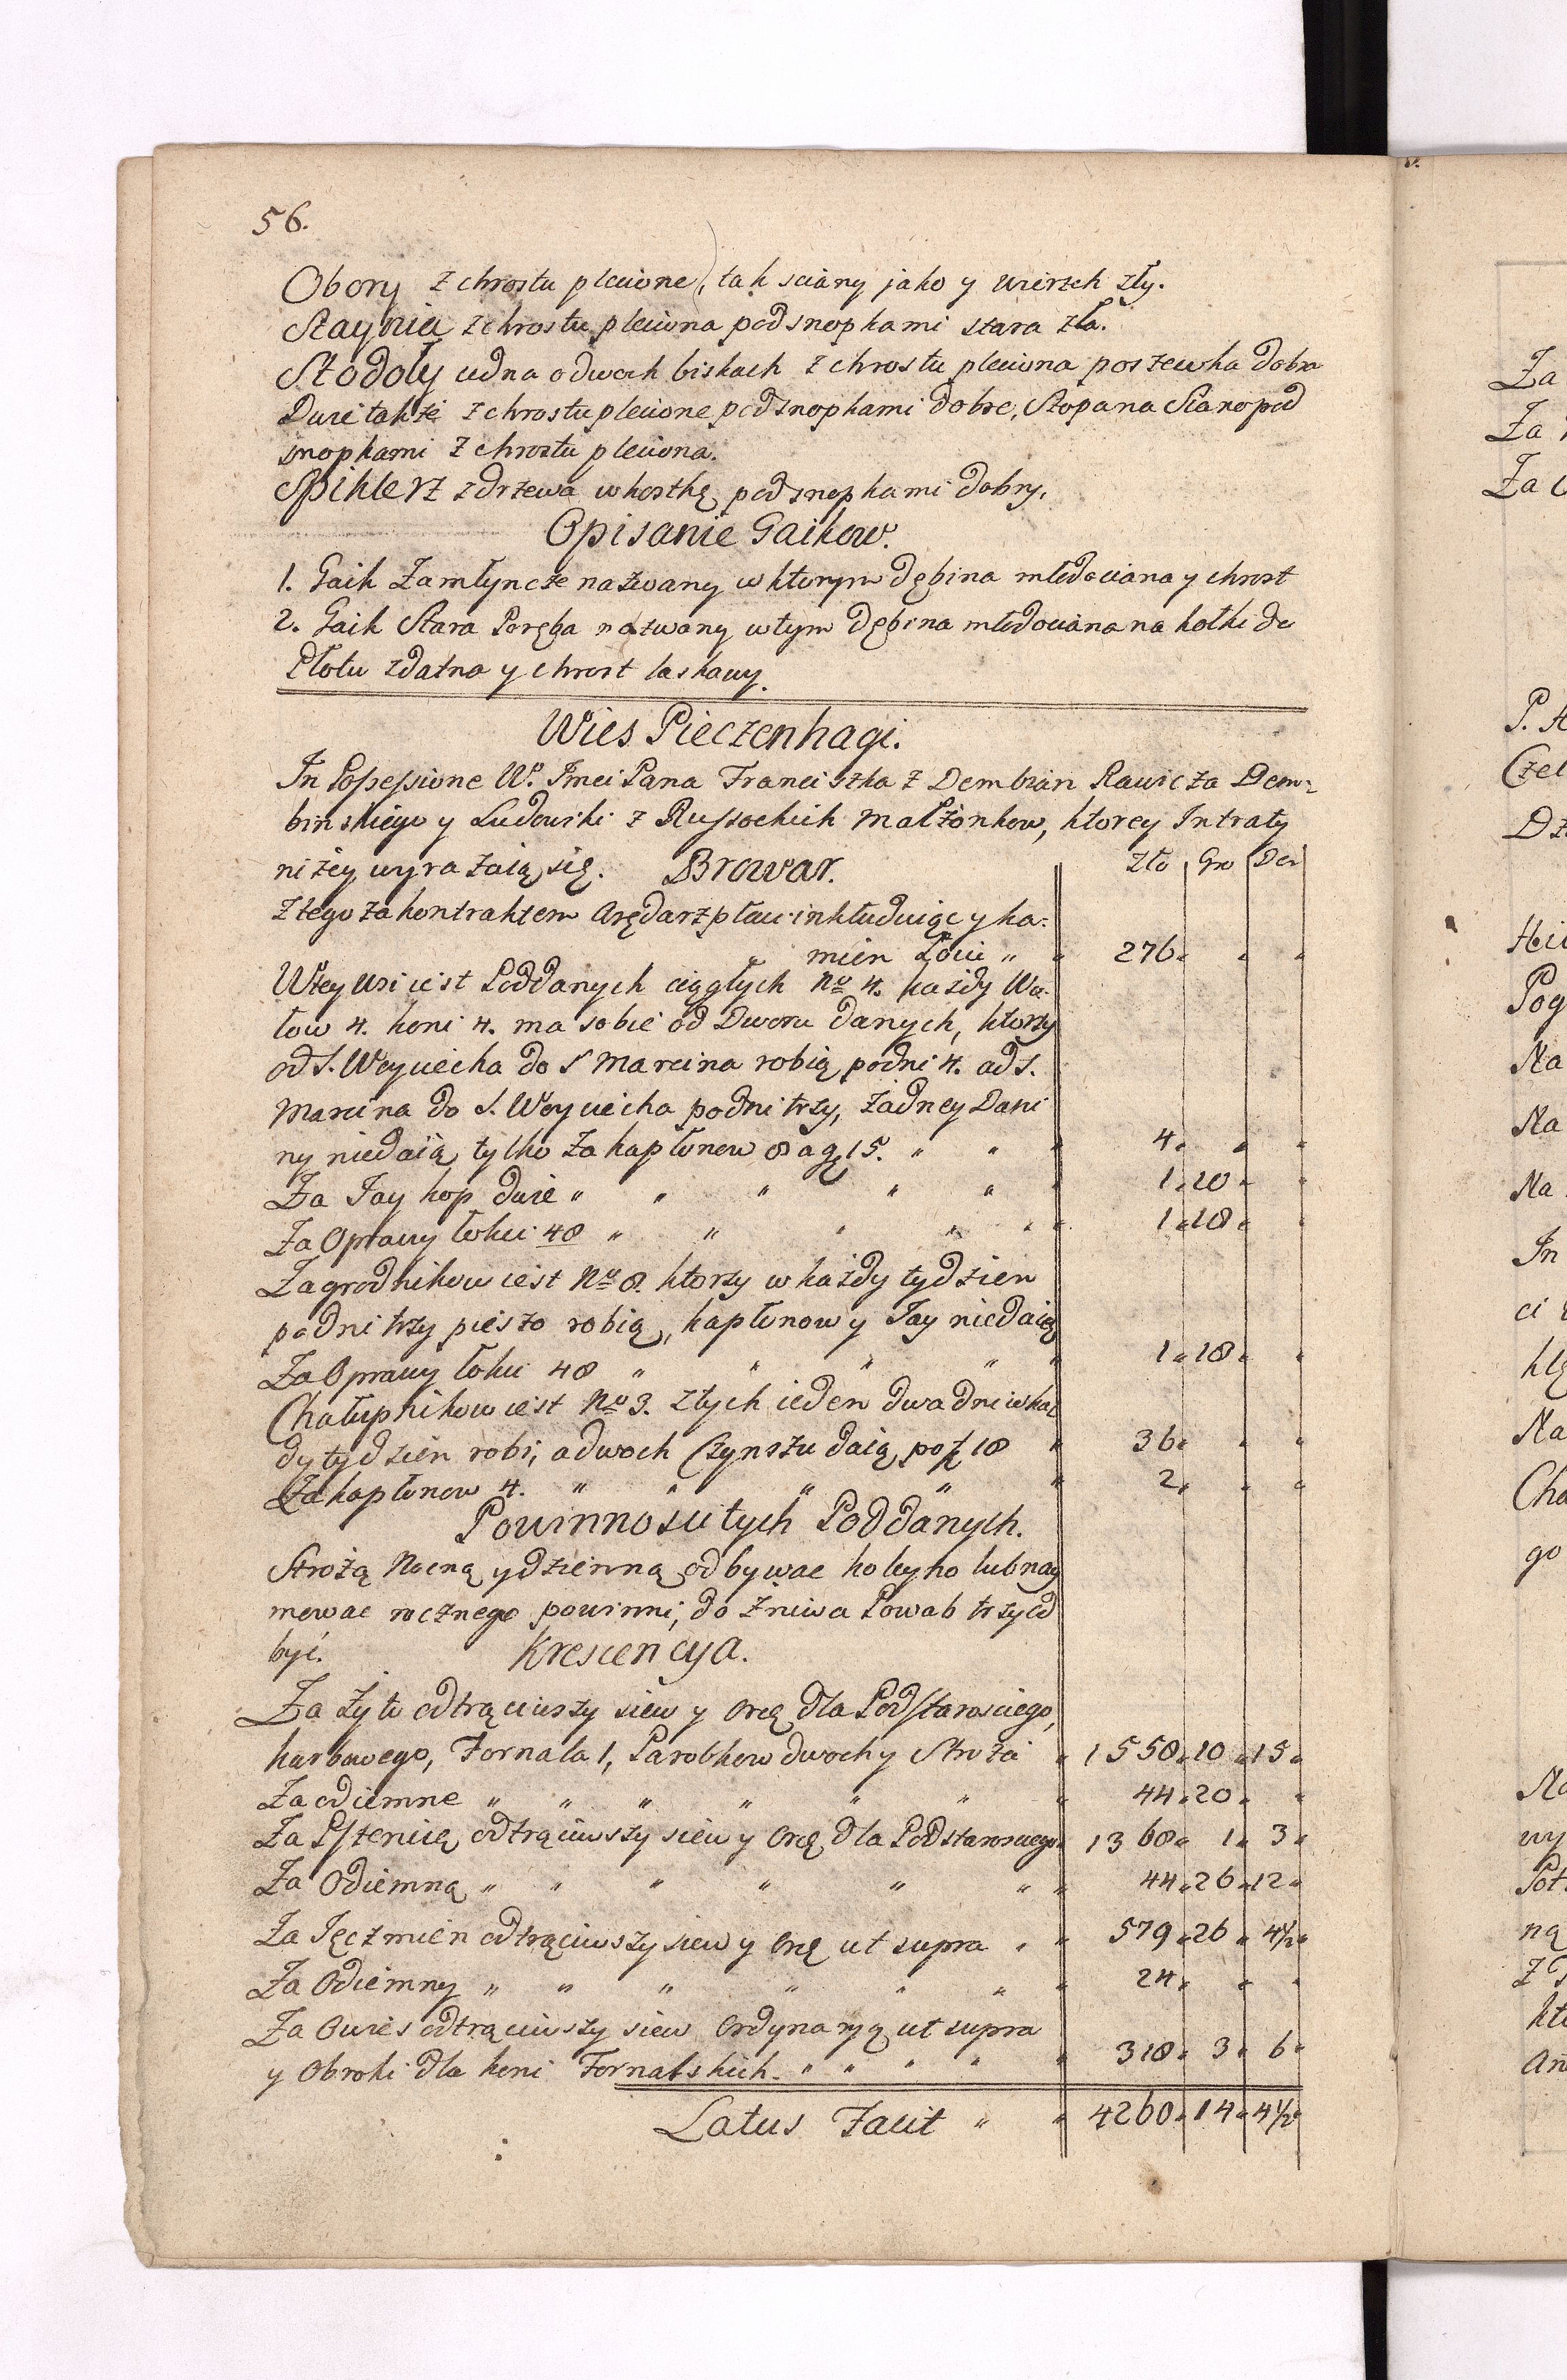 56.
Obory z chrostu plecione, tak sciany jako y wierzch zły.
Staynia z chrostu pleciona pod snopkami stara zła.
Stodoły iedna o dwoch biskach z chrostu pleciona poszewka dobra
Dwie także z chrostu plecione pod snopkami dobre, Szopa na Siano pod
snopkami z chrostu pleciona.
Spiklerz z drzewa w kostkę pod snopkami dobry.
Opisanie Gaikow.
1. Gaik Zamłyncze nazwany w ktorym dębina młodociana y chrost
2. Gaik Stara Poręba nazwany w tym dębina młodociana na kołki do
Płotu zdatna y chrost laskowy.
Wies Pieczenhagi.
In Possessione W. Jmci Pana Franciszka z Dembian Rawicza Dem-
binskiego y Ludowiki z Russockich Małżonkow, ktorey Intraty
niżey wyrażaią się. Browar. Zło Gro Den
Z tego za kontraktem Arędarz płaci inkluduiąc y ka-
mien Łoiu " " 276
W tey Wsi iest Poddanych ciągłych No 4. każdy Wo-
łow 4. koni 4. ma sobie od Dworu danych, ktorzy
od S. Woyciecha do S Marcina robią po dni 4. od S.
Marcina do S. Woyciecha po dni trzy, żadney Dani
ny niedaią tylko za kapłonow 8 a g 15. " " " 4
Za Jay kop dwie " " " " " " 1 10
Za Oprawy łokci 48 " " " " " " 1 18
Zagrodnikow iest No 8. ktorzy w każdy tydzien
po dni trzy pieszo robią, kapłonow y Jay niedaią
Za Oprawy łokci 48 " " " " " 1 18
Chałupnikow iest No 3. z tych ieden dwa dni w każ
dy tydzien robi, a dwoch Czynszu daią po zł 18 " 36
Za kapłonow 4. " " " " " 2
Powinnosci tych Poddanych.
Strożą Nocną y dzienną odbywac koleyno lub nay
mować rocznego powinni, do żniwa Powab trzy od
być. Krescencya.
Za żyto odtrąciwszy siew y Ordą dla Podstarosciego,
karbowego, Fornala 1, Parobkow dwoch y Stroża " 1558 10 15
Za odiemne " " " " " " " 44 20
Za Pszenicę odtrąciwszy siew y Ordą dla Podstarosciego 1368 1 3
Za Odiemną " " " " " " " 44 26 12
Za Jęczmien odtrąciwszy siew y Ordą ut supra " " 579 26 4½
Za Odiemny " " " " " " " 24
Za Owies odtrąciwszy siew Ordynaryą ut supra
y Obroki dla koni Fornalskich. " " " " " 318 3 6
Latus Facit " " 4260 14 4½